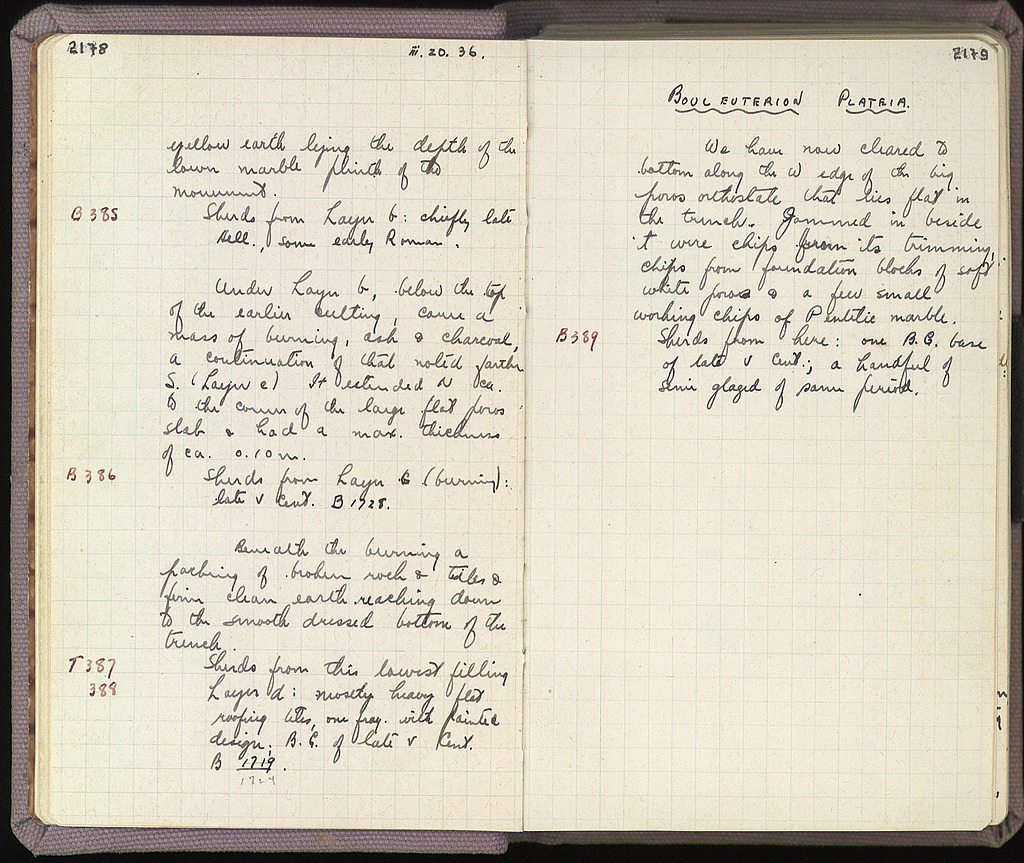 2178
iii. 20. 36.
yellow earth lying the depth of the
lower marble plinth of the
monument.
B 385
Sherds from Layer b: chiefly late
Hell., some early Roman.
Under Layer b, below the top
of the earlier cutting, came a
mass of burning, ash & charcoal,
a continuation of that noted farther
S. (Layer c) It extended N ca.
to the corner of the large flat poros
slab & had a max. thickness
of ca. 0.10 m.
B 386
Sherds from Layer c (burning):
late V Cent. B 1728.
Beneath the burning a
packing of broken rock & tiles &
firm clean earth reaching down
to the smooth dressed bottom of the
trench.
T 387
388
Sherds from this lowest filling
Layer d: mostly heavy flat
roofing tiles, one frag. with painted
design; B.G. of late V Cent.
B 1719.
1724
2179
BOULEUTERION PLATEIA.
We have now cleared to
bottom along the W edge of the big
poros orthostate that lies flat in
the trench. Jammed in beside
it were chips from its trimming,
chips from foundation blocks of soft
white poros & a few small
working chips of Pentelic marble.
B 389
Sherds from here: one B.G. base
of late V Cent.; a handful of
semi glazed of same period.